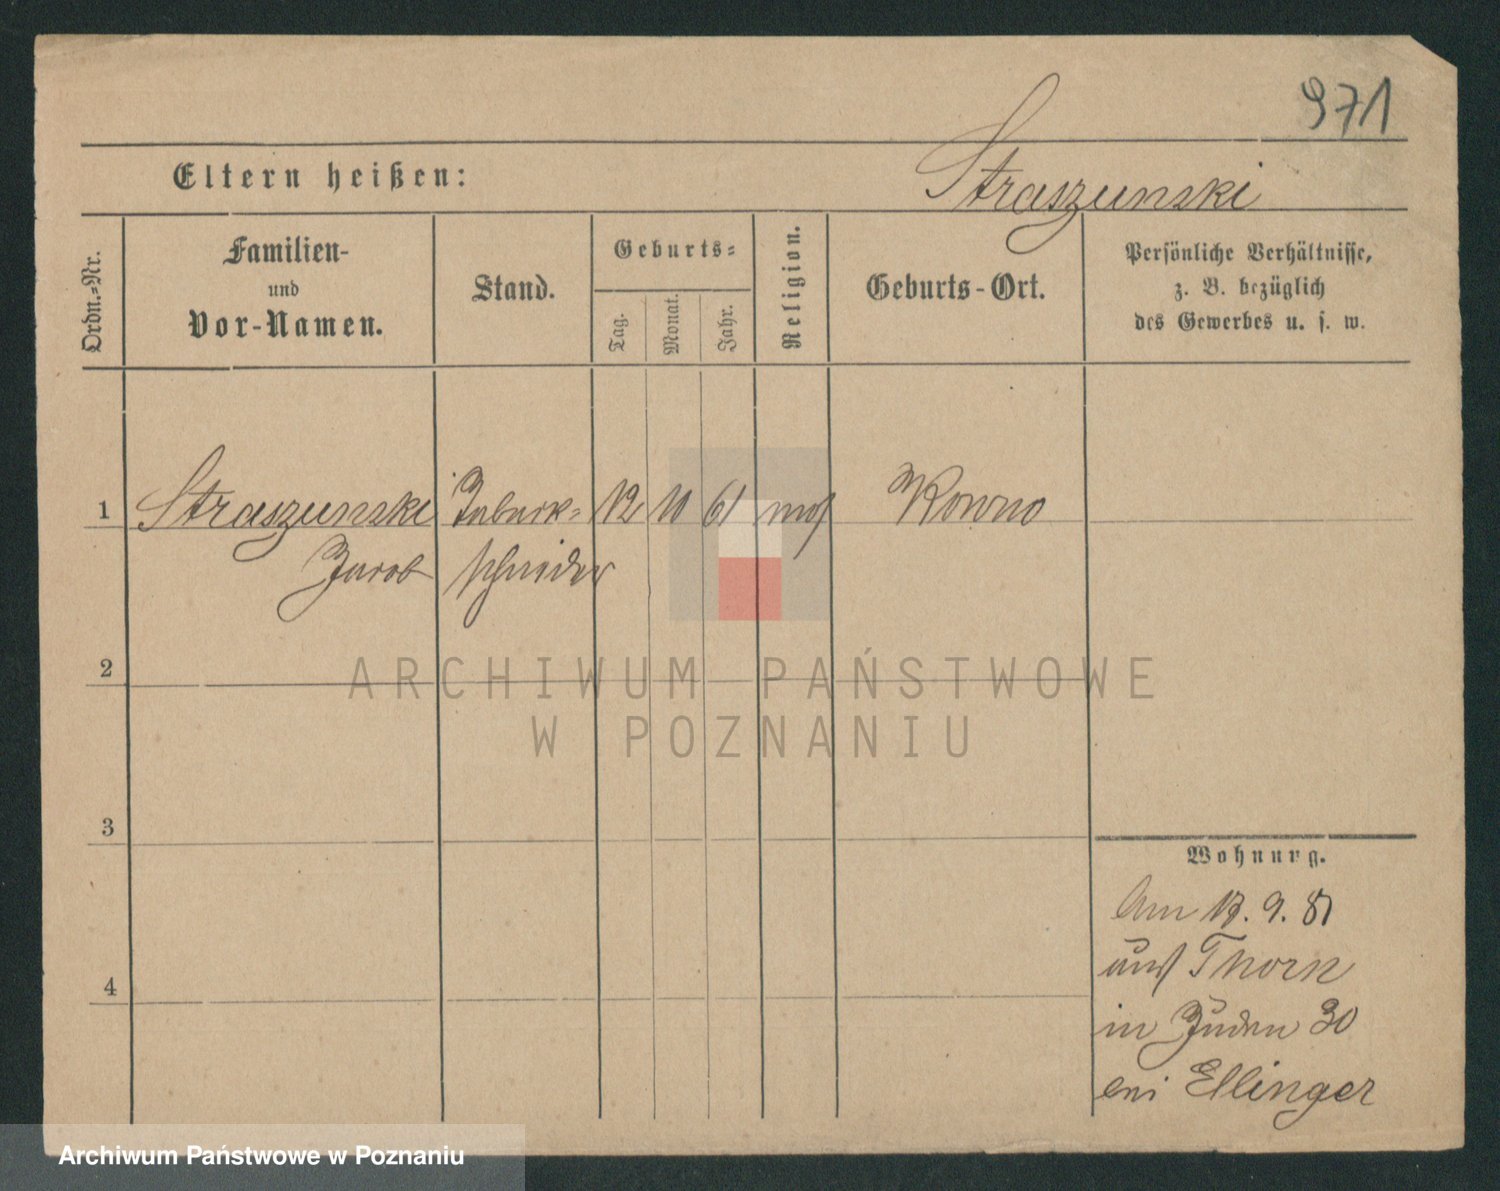 971
Straszunski
Eltern heißen:
Ordn.-Nr.
Familien-
und
Vor-Namen.
Stand.
Geburts-
Tag.
Monat.
Jahr.
Religion.
Geburts-Ort.
Persönliche Verhältnisse,
z. B. bezüglich
des Gewerbes u. s. w.
1 Straszunski Taback- 12 10 61 mos Kowno
Jacob schneider
2
ARCHIWUM PAŃSTWOWE
W POZNANIU
3
Wohnung.
Am 17. 9. 81
aus Thorn
4
in Juden 30
bei Ellinger
Archiwum Państwowe w Poznaniu